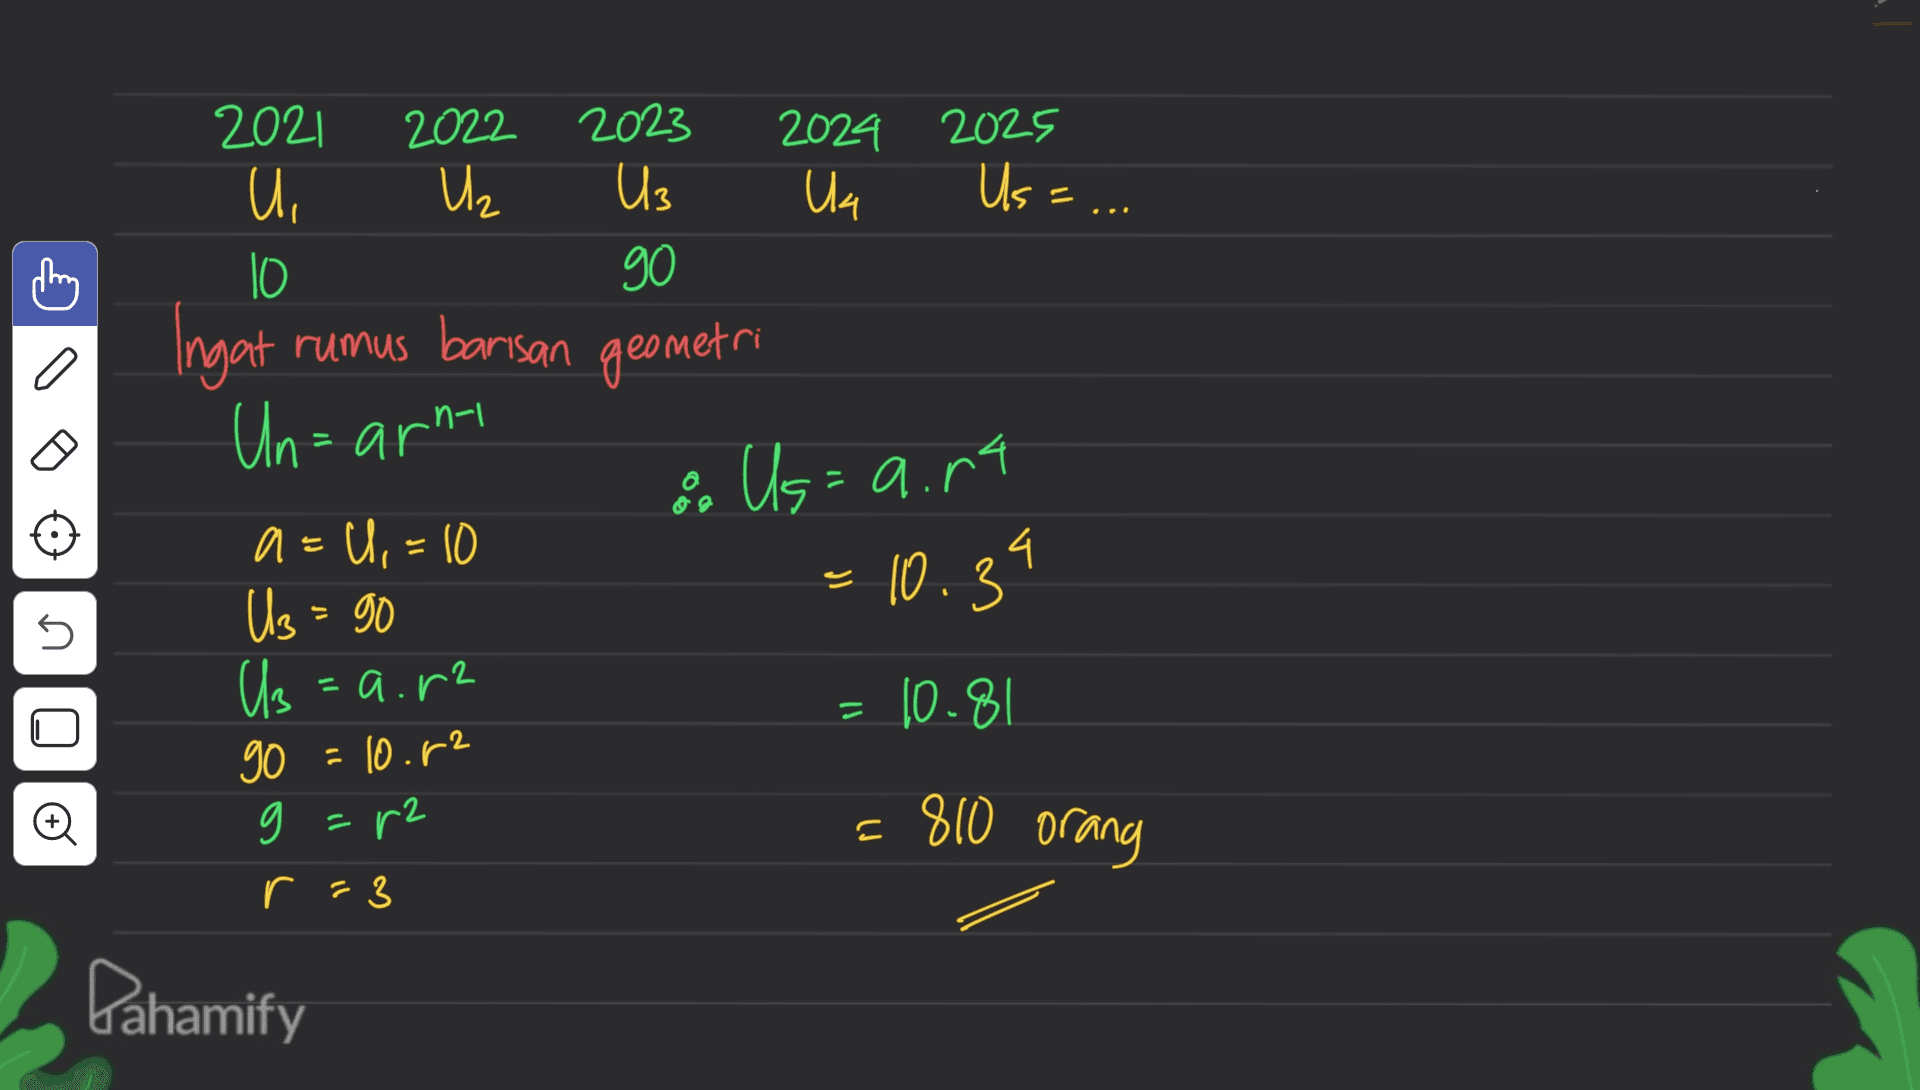 2021 2022 2023 2024 2025
U₁ U₂ U₃ U₄ U₅ = ...
10 90
Ingat rumus barisan geometri
Un = arⁿ⁻¹
a = U₁ = 10
U₃ = 90
U₃ = a.r²
90 = 10.r²
9 = r²
r = 3
∴ U₅ = a.r⁴
= 10.3⁴
= 10.81
= 810 orang
Pahamify